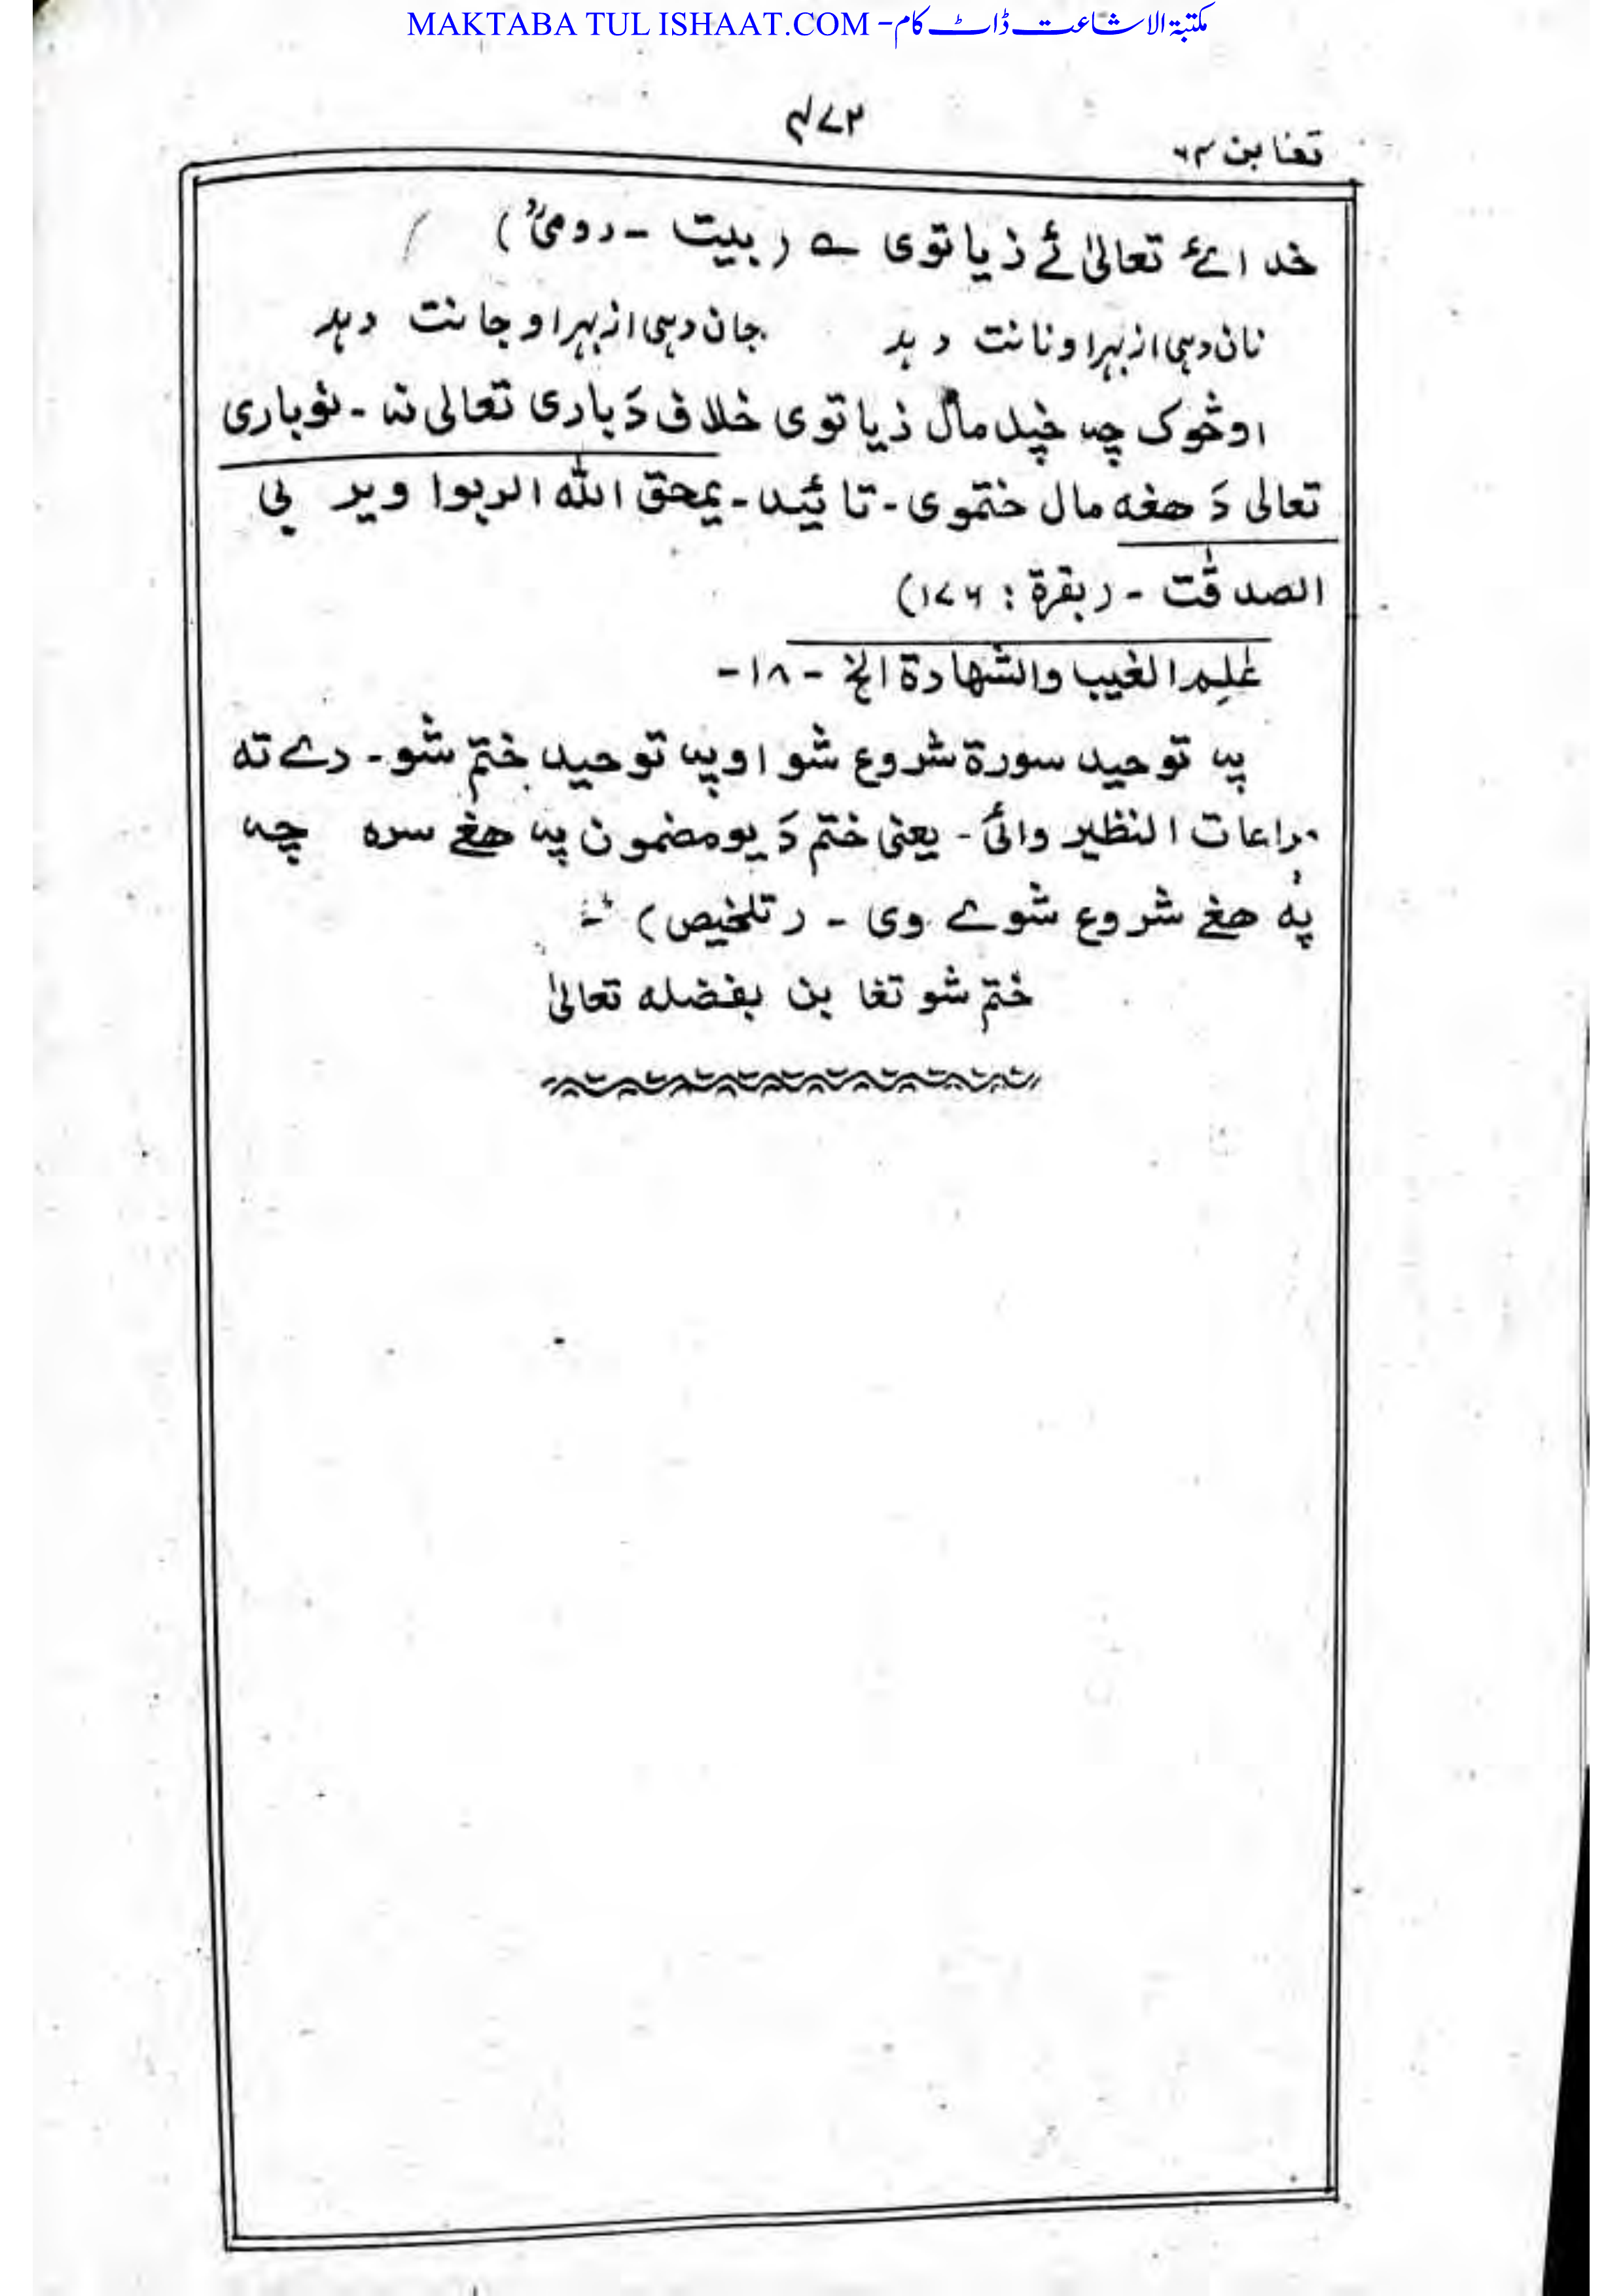 مکتبۃ الاشاعت ڈاٹ کام - MAKTABA TUL ISHAAT.COM
۴۷۲
تغابن ۶۴
خدائے تعالیٰ ئے زیاتوی ؎ (بیت - رومیؒ)
نان دہی از بہر او نانت دہد جان دہی از بہر او جانت دہد
او څوک چه خپله مال زیاتوی خلاف دَ باری تعالی نه - نو باری
تعالی دَ هغه مال ختموی - تائید - یمحق الله الربوا ویر بی
الصدقٰت - (بقرة : ۱۷۶)
عٰلِم الغیب والشهادة الخ - ۱۸ -
په توحید سورة شروع شو او په توحید ختم شو - دے ته
مراعات النظیر وائی - یعنی ختم دَ یو مضمون په هغے سره چه
په هغے شروع شوے وی - (تلخیص)
ختم شو تغابن بفضله تعالیٰ